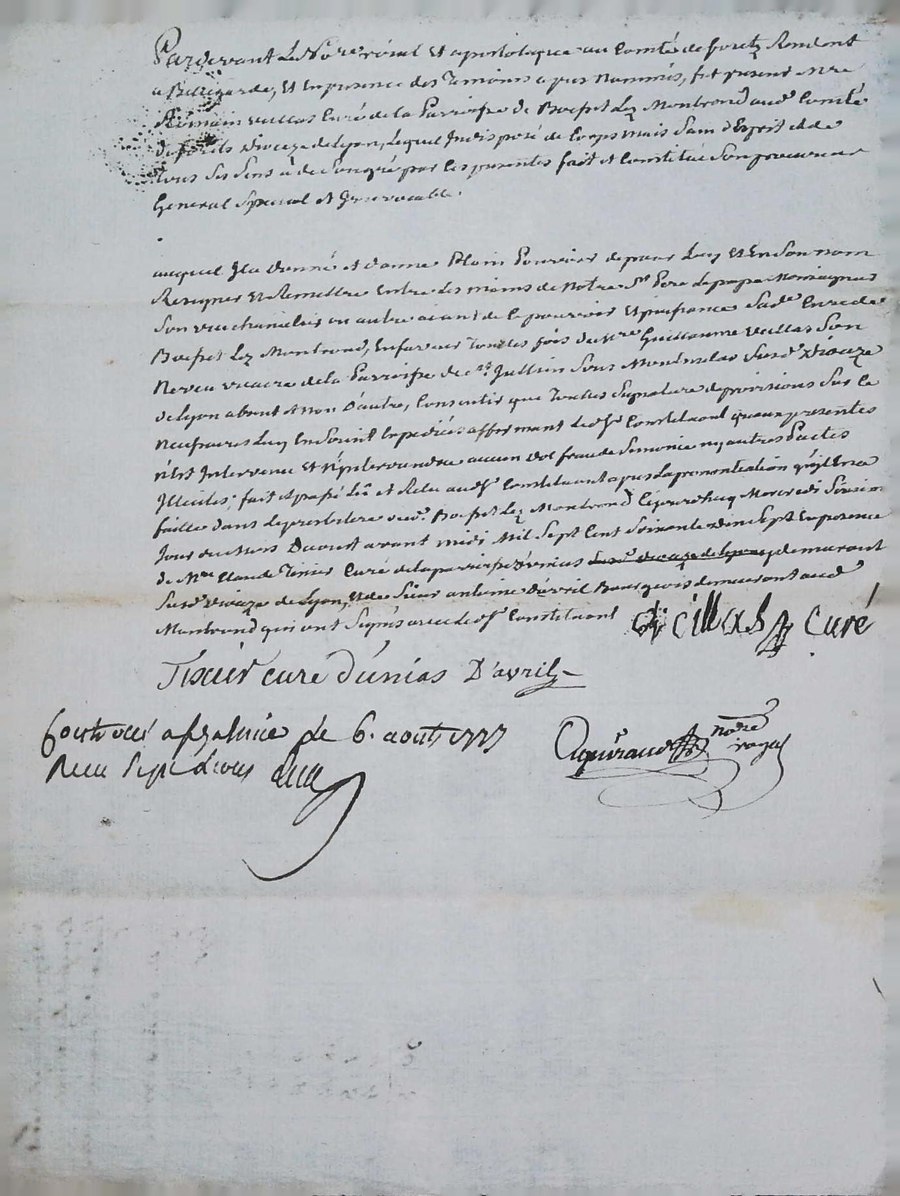 Pardevant Le No.re roial Et apostolique au Comté de foretz Residant
a Bellegarde, Et En presence des Temoins apres Nommés, fut present m.re
vicillas Curé de la Parroisse de Boisset Lez Montrond aud. Comté
de forets Dioceze de Lyon, Lequel Indisposé de Corps mais Sain d'Esprit et de
tous Ses Sens a de Son gré par Les presentes fait et Constitué Son procureur
General Special et Irrevocable
auquel Il a donné et donne Plain Pouvoir de pour Luy Et En Son nom
Resigner Et Remettre Entre Les mains de Notre S.t Pere Le pape Monseigneur
Son vice chancelier ou autre aiant de Ce pouvoir Et puissance Sad. Cure de
Boisset Lez Montrond, En faveur Toutes fois de m.re Guillaume vicillas Son
Neveu vicaire de la Parroisse de S.t Jullien Sous Montmelas Susd. Dioceze
de Lyon absent et Non D'autre, Consentir que Toutes Signature de provisions Sur Ce
Necessaires Luy En Soient Expediées affirmant Led. S.r Constituant qu'aux presentes
n'Est Intervenu Et N'Interviendra aucun dol fraude Simonie ny autres Pactes
Illicites; fait et passé Lû et Relu aud. S.r Constituant apres La prononciation qu'il En a
faitte dans Le presbitere dud. Boisset Lez Montrond Cejourd'huy Mercredi Sixieme
Jour du Mois D'aoust avant midi Mil Sept Cent Soixante Dix Sept En presence
de M.re Claude Tixier Curé de la parroisse d'unias y demeurant
Susd. Dioceze de Lyon, Et de Sieur antoine D'avril Bourgeois demeurant aud.
Montrond qui ont Signés avec Led. S.r Constituant
vicillas Curé
Tixier curé d'unias D'avril
Controllé a le 6. aout 1777
Reçu Sept Livres
no.re
royal